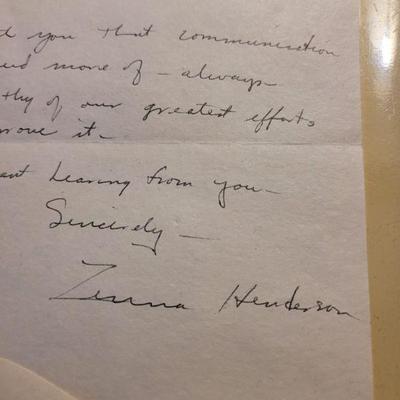 d you that communication
need more of – always
thy of our greatest efforts
prove it –
ant hearing from you –
Sincerely –
Zenna Henderson